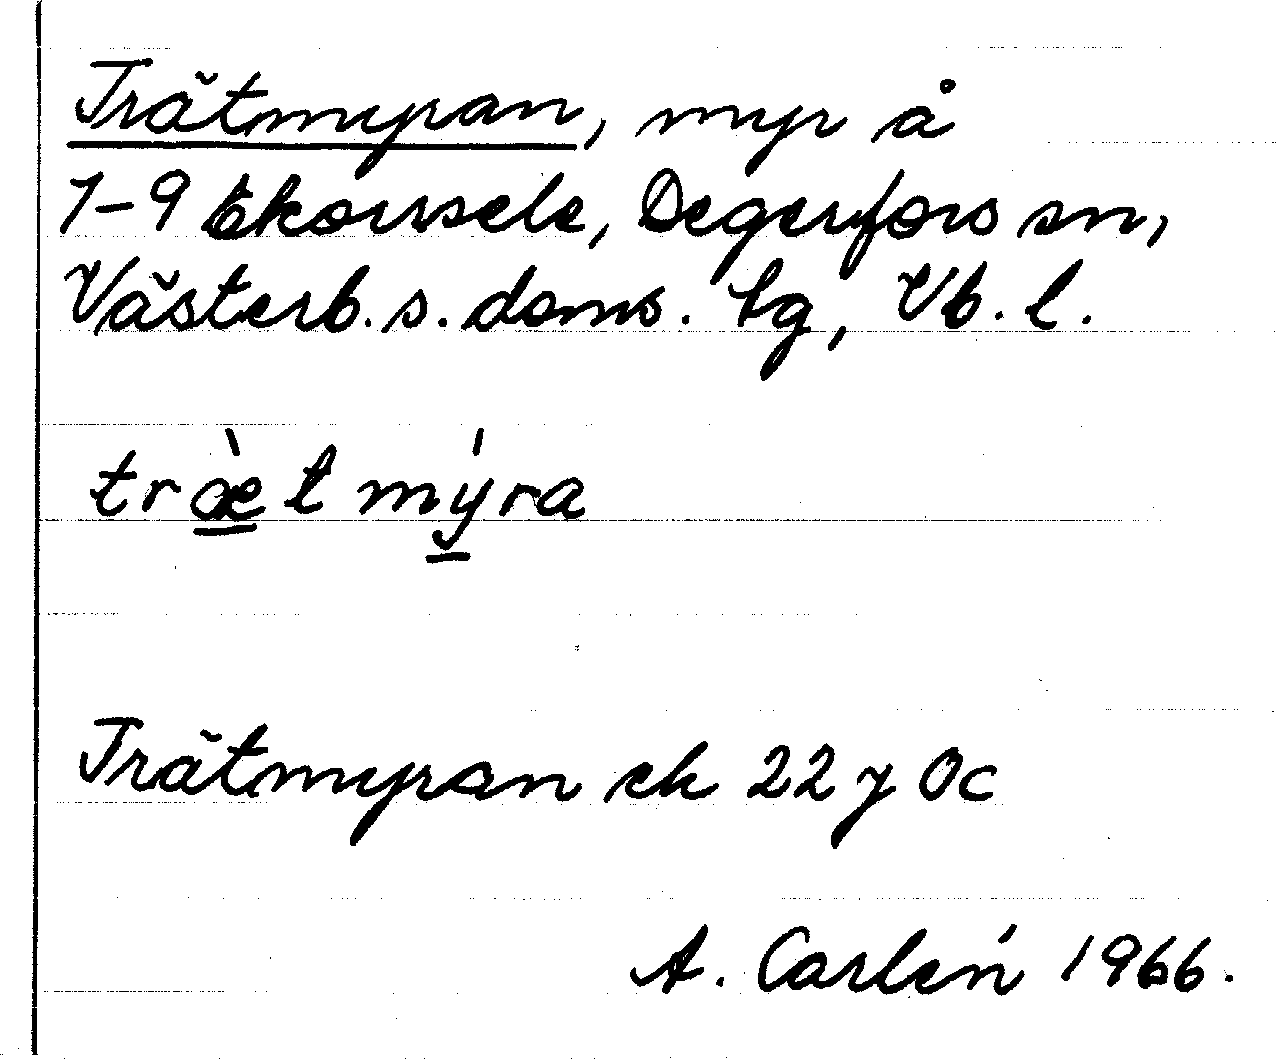 Trätmyran, myr å
1-9 Ekorrsele, Degerfors sn,
Västerb. s. doms. tg, Vb. l.
træ̀t mýra
Trätmyran ek 22 y Oc
A. Carlén 1966.